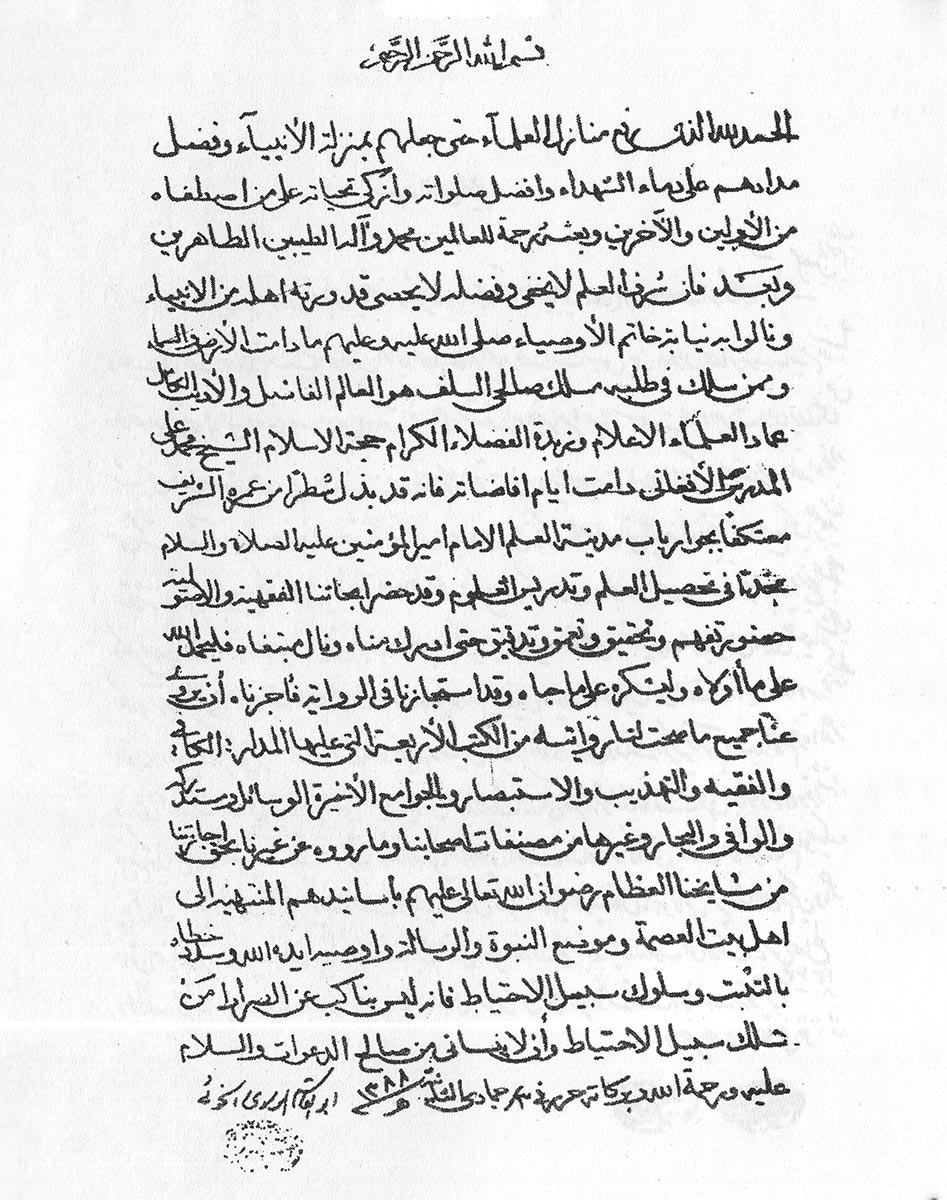 بسم الله الرحمن الرحيم
الحمد لله الذي رفع منازل العلمآء حتى جعلهم بمنزلة الأنبيآء وفضل
مدادهم على دماء الشهداء وافضل صلواته وأزكى تحياته على من اصطفاه
من الأولين والآخرين وبعثه رحمة للعالمين محمد وآله الطيبين الطاهرين
وبعد فان شرف العلم لا يخفى وفضله لا يحصى قد ورثه اهله من الانبياء
ونالوا به نيابة خاتم الأوصياء صلى الله عليه وعليهم ما دامت الأرض والسماء
وممن سلك في طلبه مسلك صالحي السلف هو العالم الفاضل والأديب الكامل
عماد العلمآء الاعلام وزبدة الفضلاء الكرام حجة الاسلام الشيخ محمد علي
المدرس الأفغاني دامت أيام افاضاته فانه قد بذل شطرا من عمره الشريف
معتكفا بجوار باب مدينة العلم الامام امير المؤمنين عليه الصلاة والسلام
مجدّا في تحصيل العلم وتدريس العلوم وقد حضر ابحاثنا الفقهية والاصولية
حضور تفهم وتحقيق وتعمق وتدقيق حتى ادرك مناه ونال مبتغاه فليحمد الله
على ما أولاه وليشكره على ما حباه وقد استجازنا في الرواية فأجزناه أن يروي
عنّا جميع ما صحت لنا روايته من الكتب الأربعة التي عليها المدار: الكافي
والفقيه والتهذيب والاستبصار والجوامع الأخيرة الوسائل ومستدركه
والوافي والبحار وغيرها من مصنفات اصحابنا وما رووه عن غيرنا بحق اجازتنا
من مشايخنا العظام رضوان الله تعالى عليهم بأسانيدهم المنتهية الى
اهل بيت العصمة وموضع النبوة والرسالة واوصيه ايده الله وسدد خطاه
بالتثبت وسلوك سبيل الاحتياط فانه ليس بناكب عن الصراط من
سلك سبيل الاحتياط وأن لا ينساني من صالح الدعوات والسلام
عليه ورحمة الله وبركاته حرر في جمادى الثانية ١٣٨٨ ه ابو القاسم الموسوي الخوئي